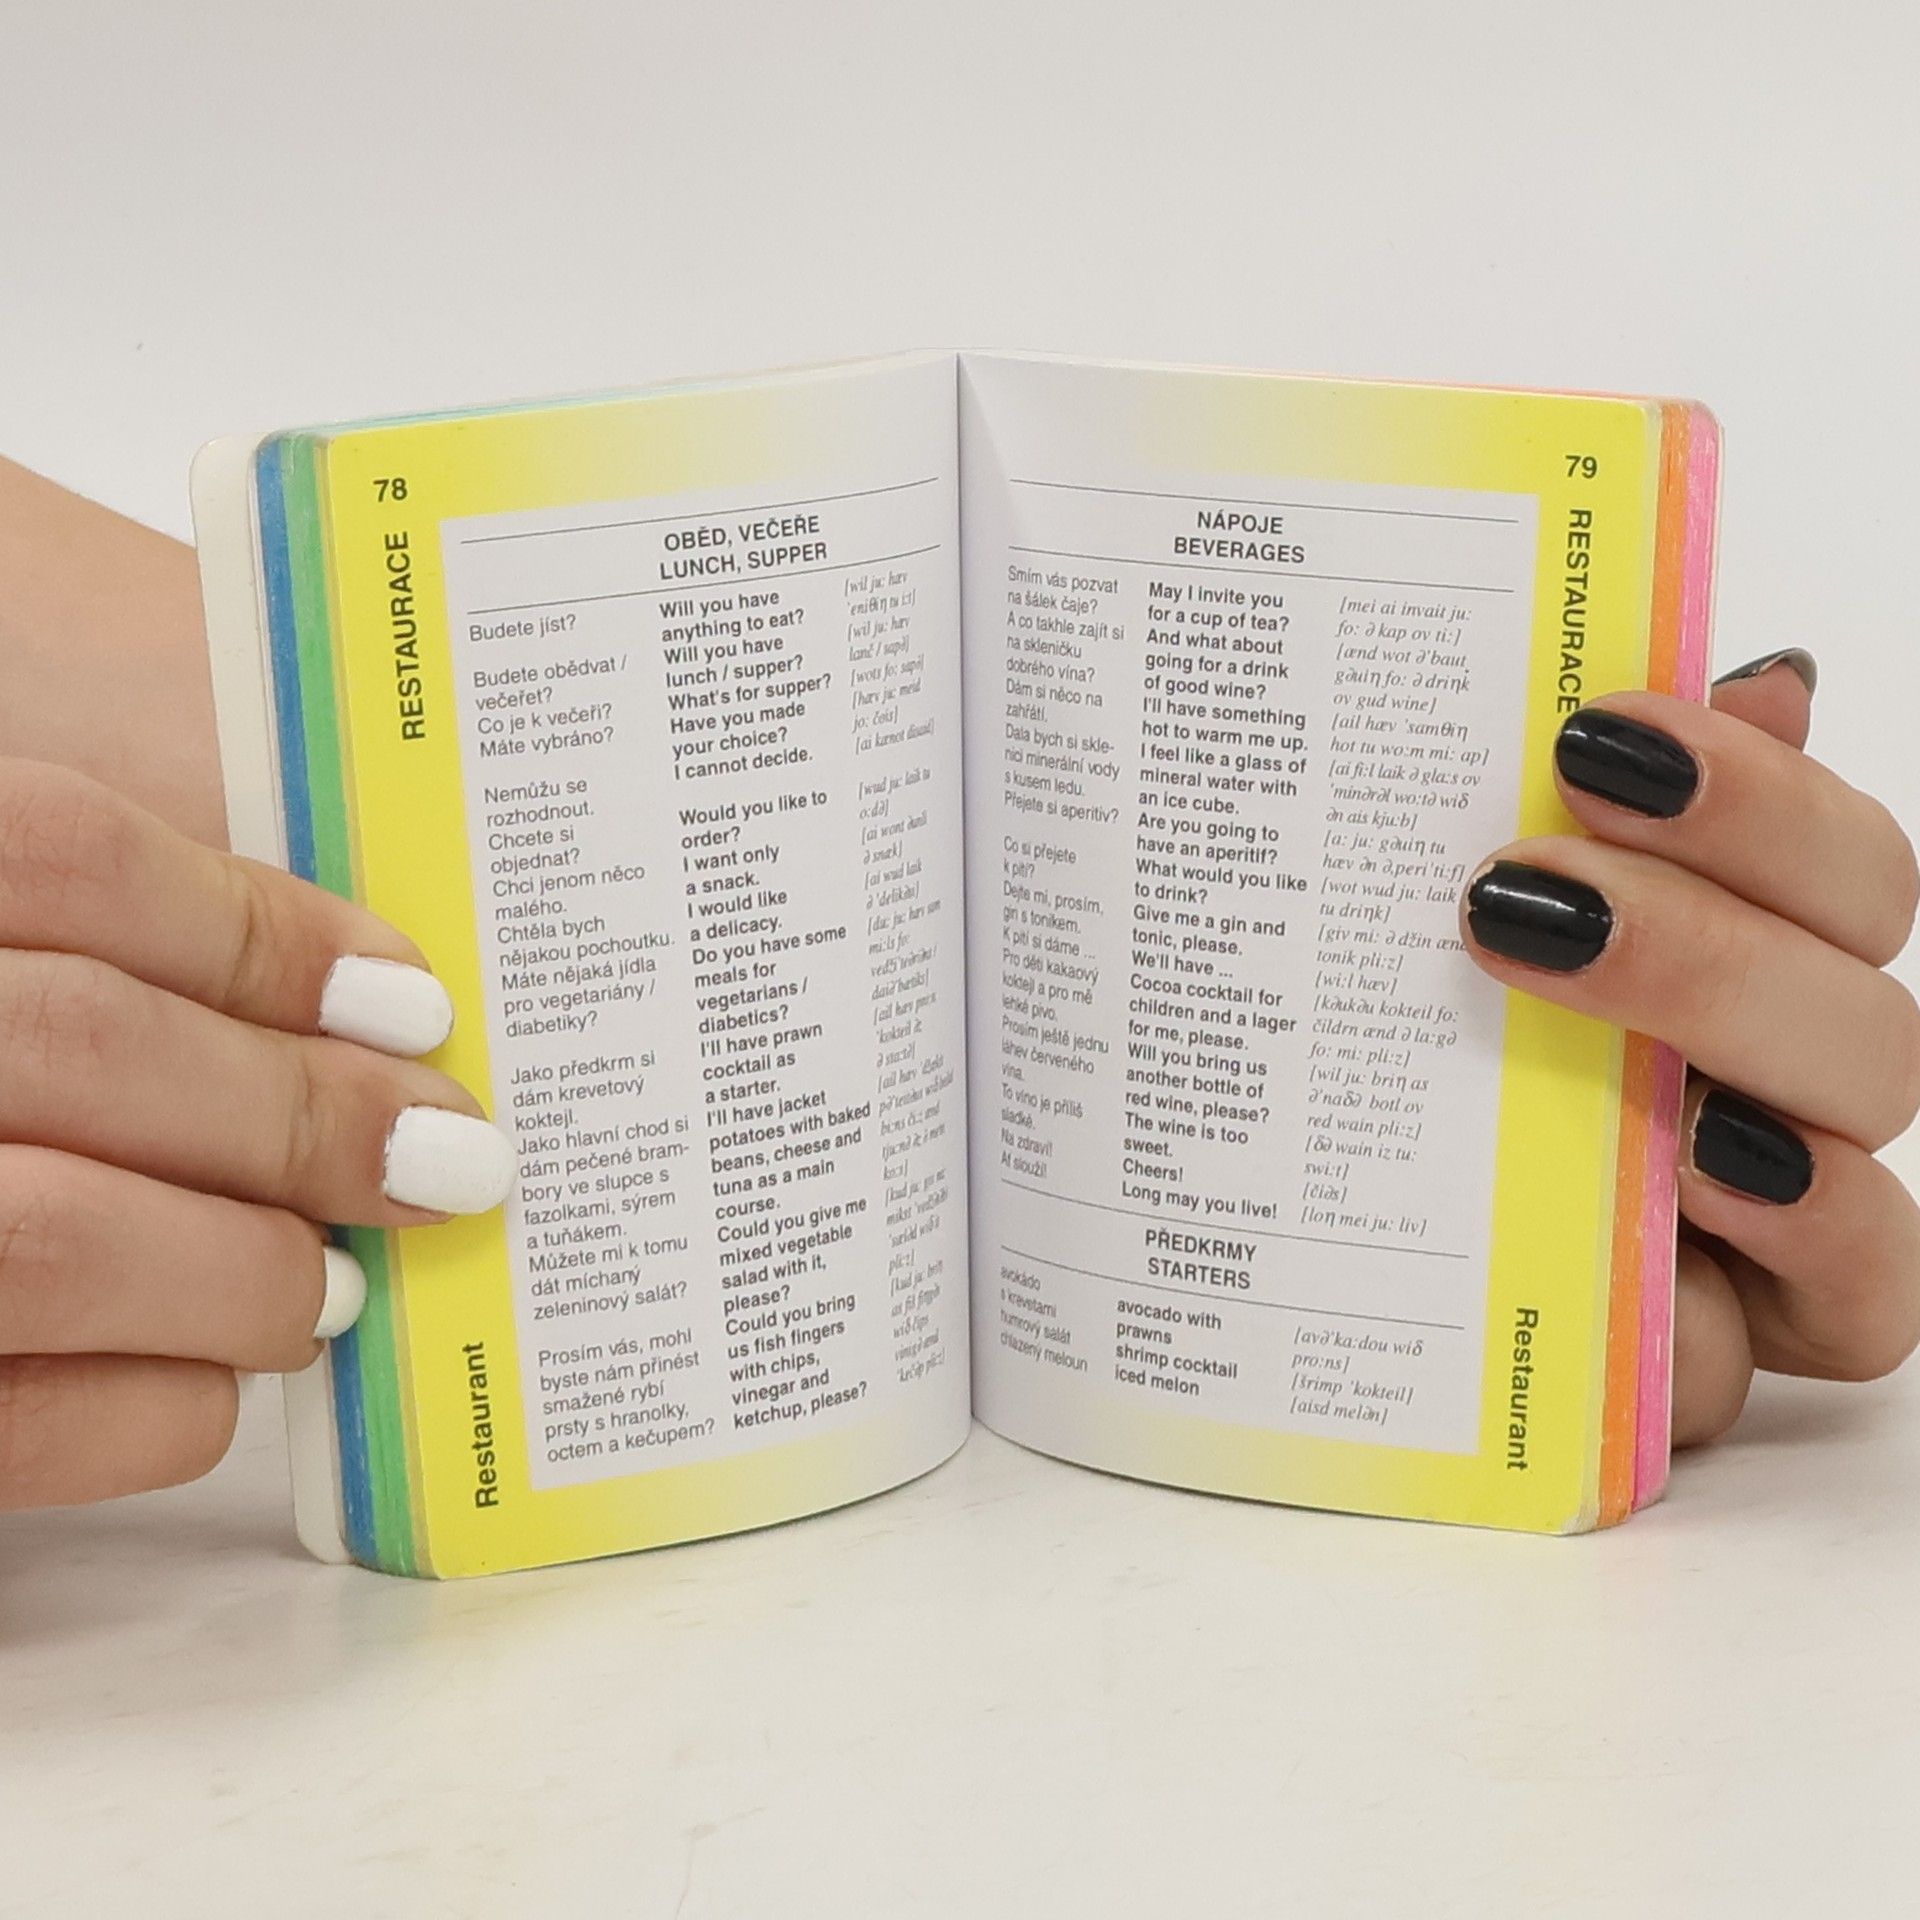 78
RESTAURACE
Restaurant
OBĚD, VEČEŘE
LUNCH, SUPPER
Budete jíst?
Budete obědvat /
večeřet?
Co je k večeři?
Máte vybráno?
Nemůžu se
rozhodnout.
Chcete si
objednat?
Chci jenom něco
malého.
Chtěla bych
nějakou pochoutku.
Máte nějaká jídla
pro vegetariány /
diabetiky?
Jako předkrm si
dám krevetový
koktejl.
Jako hlavní chod si
dám pečené bram-
bory ve slupce s
fazolkami, sýrem
a tuňákem.
Můžete mi k tomu
dát míchaný
zeleninový salát?
Prosím vás, mohl
byste nám přinést
smažené rybí
prsty s hranolky,
octem a kečupem?
Will you have
anything to eat?
Will you have
lunch / supper?
What's for supper?
Have you made
your choice?
I cannot decide.
Would you like to
order?
I want only
a snack.
I would like
a delicacy.
Do you have some
meals for
vegetarians /
diabetics?
I'll have prawn
cocktail as
a starter.
I'll have jacket
potatoes with baked
beans, cheese and
tuna as a main
course.
Could you give me
mixed vegetable
salad with it,
please?
Could you bring
us fish fingers
with chips,
vinegar and
ketchup, please?
[wil ju: hæv
'eniθiη tu i:t]
[wil ju: hæv
lanč / sapə]
[wots fo: sapə]
[hæv ju: meid
jo: čois]
[ai kænot disaid]
[wud ju: laik tu
o:də]
[ai wont əunli
ə snæk]
[ai wud laik
ə 'delikəsi]
79
RESTAURACE
Restaurant
NÁPOJE
BEVERAGES
Smím vás pozvat
na šálek čaje?
A co takhle zajít si
na skleničku
dobrého vína?
Dám si něco na
zahřátí.
Dala bych si skle-
nici minerální vody
s kusem ledu.
Přejete si aperitiv?
Co si přejete
k pití?
Dejte mi, prosím,
gin s tonikem.
K pití si dáme ...
Pro děti kakaový
koktejl a pro mě
lehké pivo.
Prosím ještě jednu
láhev červeného
vína.
To víno je příliš
sladké.
Na zdraví!
Ať slouží!
May I invite you
for a cup of tea?
And what about
going for a drink
of good wine?
I'll have something
hot to warm me up.
I feel like a glass of
mineral water with
an ice cube.
Are you going to
have an aperitif?
What would you like
to drink?
Give me a gin and
tonic, please.
We'll have ...
Cocoa cocktail for
children and a lager
for me, please.
Will you bring us
another bottle of
red wine, please?
The wine is too
sweet.
Cheers!
Long may you live!
[mei ai invait ju:
fo: ə kap ov ti:]
[ænd wot ə'baut
gəuiη fo: ə driηk
ov gud wine]
[ail hæv 'samθiη
hot tu wo:m mi: ap]
[ai fi:l laik ə gla:s ov
'minərəl wo:tə wiδ
ən ais kju:b]
[a: ju: gəuiη tu
hæv ən ə,peri'ti:f]
[wot wud ju: laik
tu driηk]
[giv mi: ə džin ænd
tonik pli:z]
[wi:l hæv]
[kəukəu kokteil fo:
čildrn ænd ə la:gə
fo: mi: pli:z]
[wil ju: briη as
ə'naδə botl ov
red wain pli:z]
[δə wain iz tu:
swi:t]
[čiəs]
[loη mei ju: liv]
PŘEDKRMY
STARTERS
avokádo
s krevetami
humrový salát
chlazený meloun
avocado with
prawns
shrimp cocktail
iced melon
[avə'ka:dou wiδ
pro:ns]
[šrimp 'kokteil]
[aisd melən]